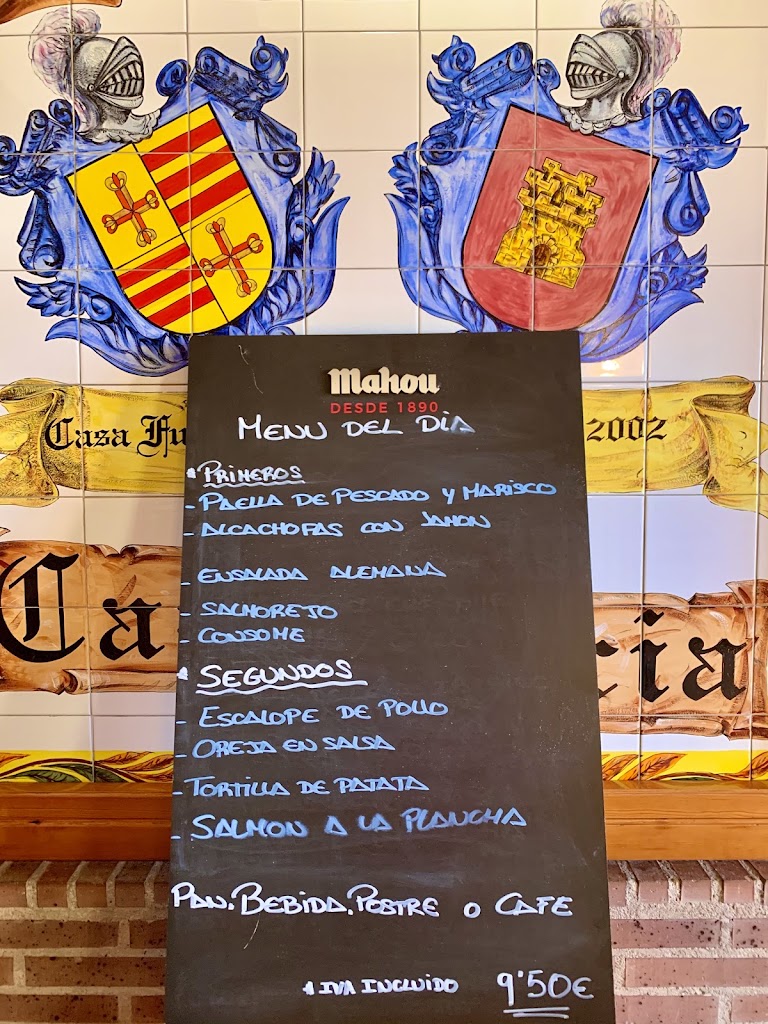 Mahou
DESDE 1890
MENU DEL DÍA
Casa Fu 2002
* PRIMEROS
- PAELLA DE PESCADO Y MARISCO
- ALCACHOFAS CON JAMON
- ENSALADA ALEMANA
Ca cia
- SALMOREJO
- CONSOME
* SEGUNDOS
- ESCALOPE DE POLLO
- OREJA EN SALSA
- TORTILLA DE PATATA
- SALMON A LA PLANCHA
PAN. BEBIDA. POSTRE O CAFE
* IVA INCLUIDO 9'50€